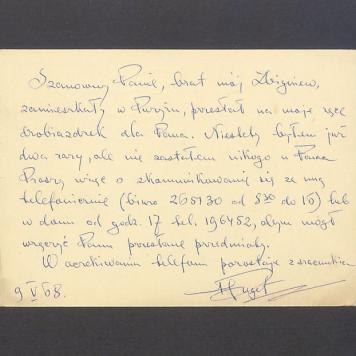 Szanowny Panie, brat mój Zbigniew,
zamieszkały w Paryżu, przesłał na moje ręce
drobiazdzek dla Pana. Niestety byłem już
dwa razy, ale nie zastałem nikogo u Pana
Proszę więc o skomunikowanie się ze mną
telefonicznie (biuro 265130 od 8³⁰ do 15) lub
w domu od godz. 17 tel. 196452, abym mógł
wręczyć Panu przesłane przedmioty.
W oczekiwaniu telefonu pozostaję z szacunkiem
9 V 68.